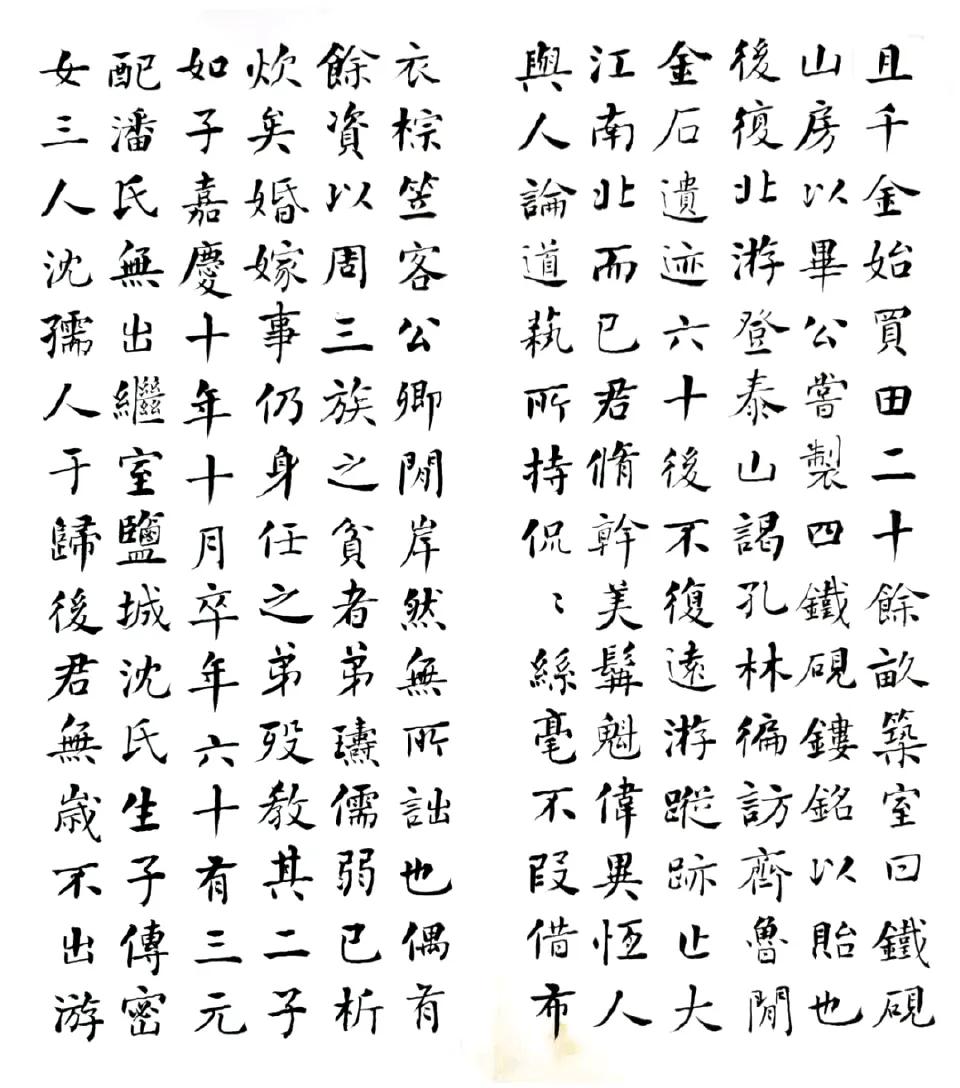 且千金始買田二十餘畝築室曰鐵硯
山房以畢公嘗製四鐵硯鏤銘以貽也
後復北游登泰山謁孔林徧訪齊魯閒
金石遺迹六十後不復遠游蹤跡止大
江南北而已君脩幹美髯魁偉異恆人
與人論道蓺所持侃〻絲毫不叚借布
衣棕笠客公卿閒岸然無所詘也偶有
餘資以周三族之貧者弟璹儒弱已析
炊矣婚嫁事仍身任之弟歿教其二子
如子嘉慶十年十月卒年六十有三元
配潘氏無出繼室鹽城沈氏生子傳密
女三人沈孺人于歸後君無歲不出游